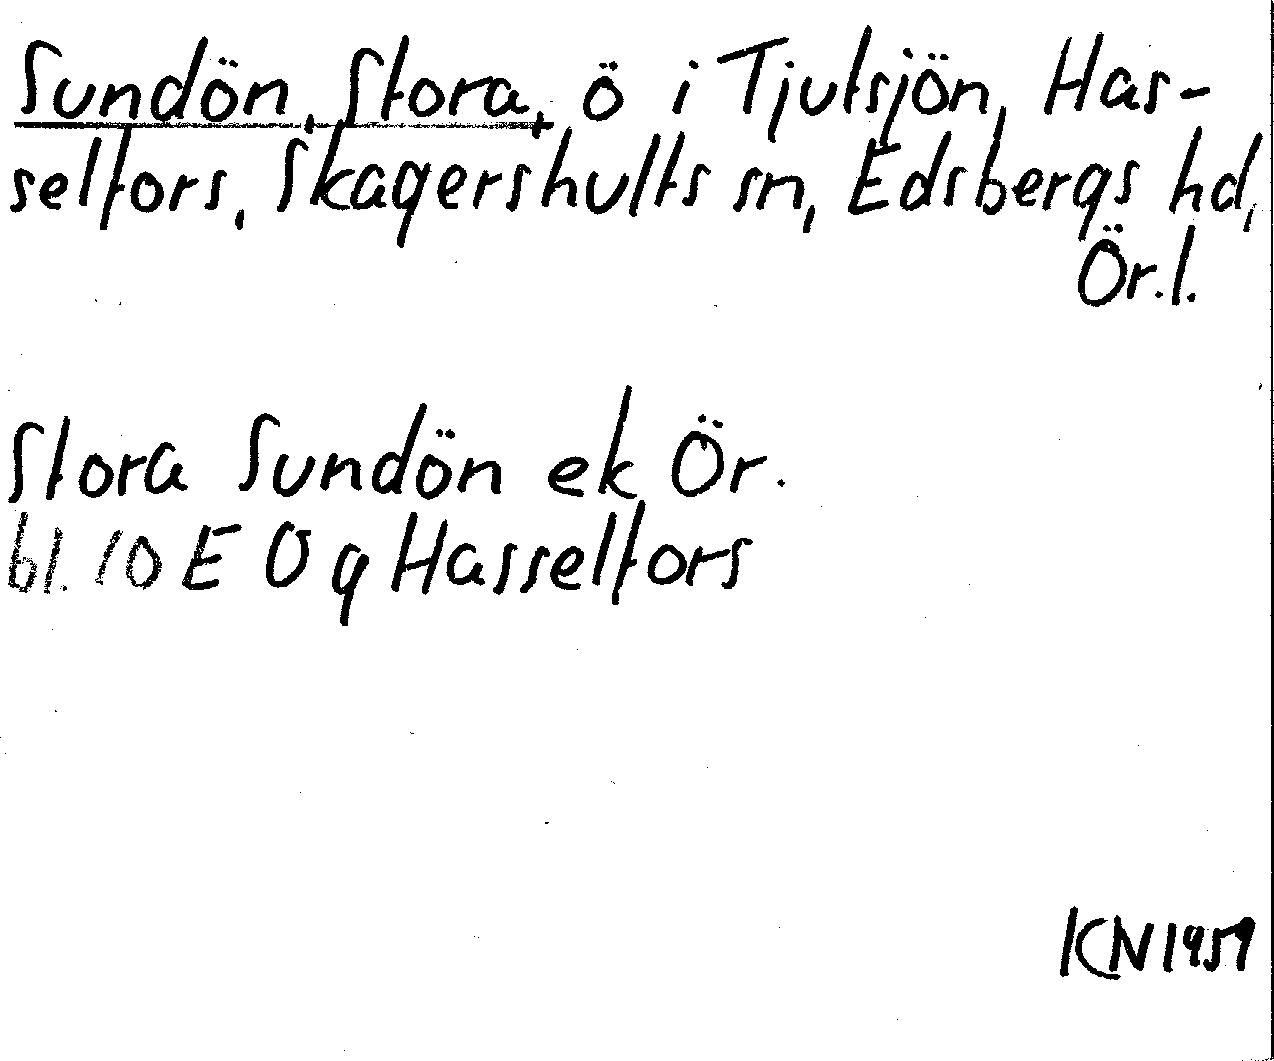 Sundön, Stora, ö i Tjutsjön, Has-
selfors, Skagershults sn, Edsbergs hd,
Ör.l.
Stora Sundön ek Ör.
bl. 10 E 0 g Hasselfors
KN 1959